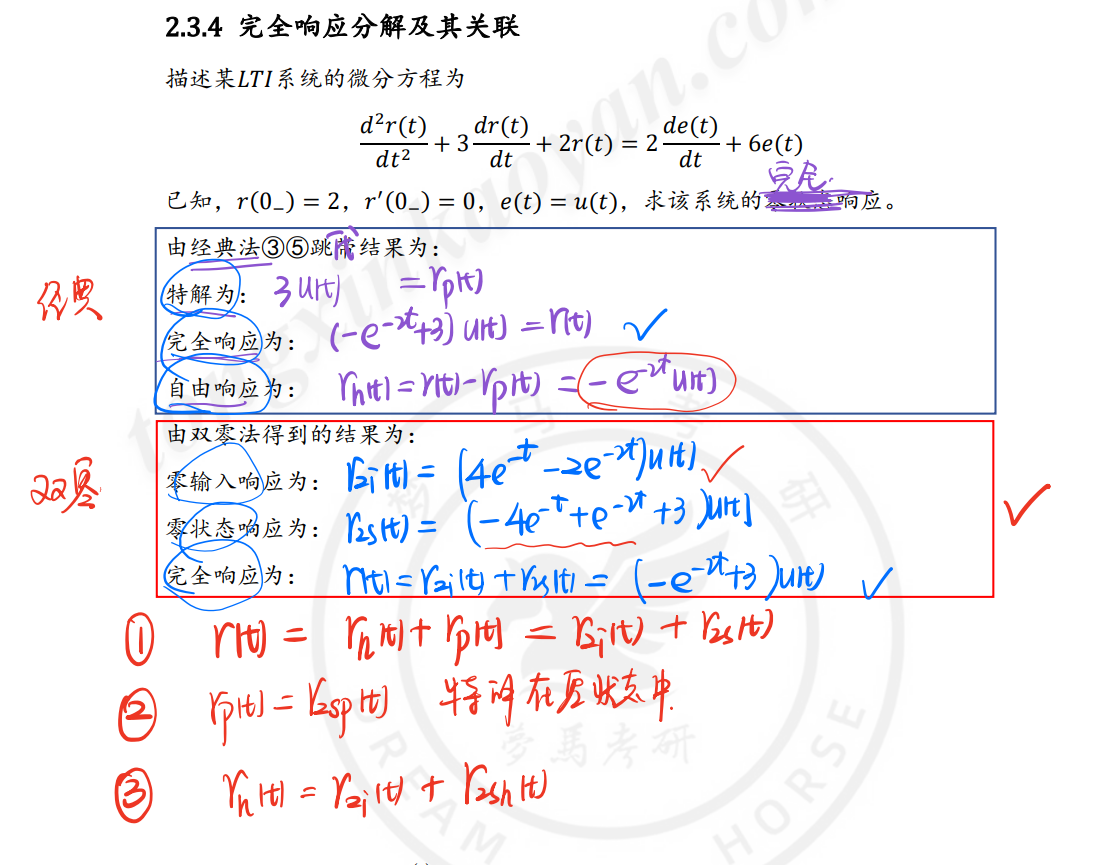 2.3.4 完全响应分解及其关联
描述某LTI系统的微分方程为
d²r(t)/dt² + 3 dr(t)/dt + 2r(t) = 2 de(t)/dt + 6e(t)
完全
已知，r(0₋) = 2，r′(0₋) = 0，e(t) = u(t)，求该系统的零状态响应。
由经典法③⑤跳帮结果为：
经典
特解为： 3u(t) = rp(t)
完全响应为： (-e^{-2t}+3)u(t) = r(t) ✓
自由响应为： rh(t) = r(t) - rp(t) = -e^{-2t}u(t)
由双零法得到的结果为：
双零
零输入响应为： rzi(t) = (4e^{-t} - 2e^{-2t})u(t) ✓
零状态响应为： rzs(t) = (-4e^{-t} + e^{-2t} + 3)u(t) ✓
完全响应为： r(t) = rzi(t) + rzs(t) = (-e^{-2t}+3)u(t) ✓
① r(t) = rh(t) + rp(t) = rzi(t) + rzs(t)
② rp(t) = rzsp(t) 特解在零状态中.
③ rh(t) = rzi(t) + rzsh(t)
tangxinkaoyan.com
梦馬考研
DREAM HORSE